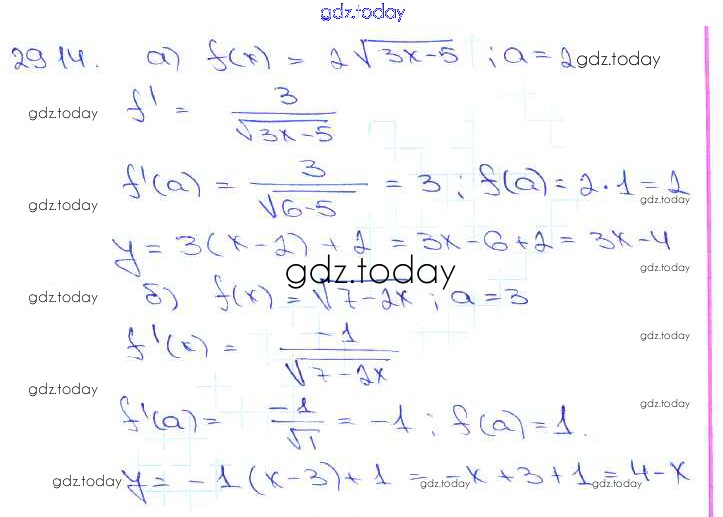 gdz.today
29.14. а) f(x) = 2√(3x-5) ; a = 2 gdz.today
gdz.today f' = 3/√(3x-5)
f'(a) = 3/√(6-5) = 3 ; f(a) = 2·1 = 2
gdz.today gdz.today
y = 3(x-2) + 2 = 3x-6+2 = 3x-4
gdz.today gdz.today
gdz.today б) f(x) = √(7-2x) ; a = 3
f'(x) = -1/√(7-2x) gdz.today
gdz.today gdz.today
f'(a) = -1/√1 = -1 ; f(a) = 1.
gdz.today y = -1(x-3)+1 = -x+3+1 = 4-x
gdz.today gdz.today